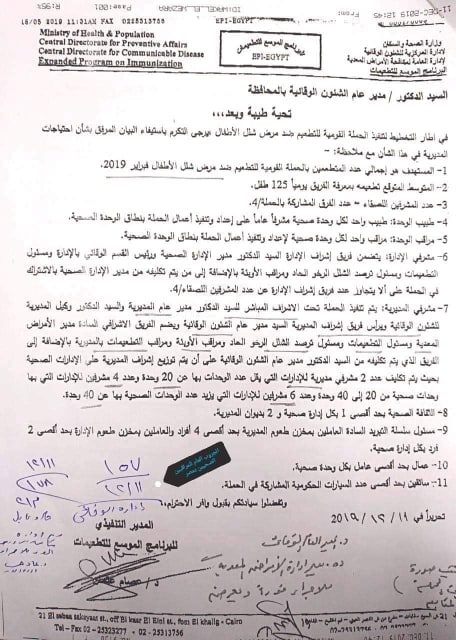 16/05 2019 11:31AM FAX 0225313759
EPI-EGYPT
Ministry of Health & Population
Central Directorate for Preventive Affairs
Central Directorate for Communicable Disease
Expanded Program on Immunization
البرنامج الموسع للتطعيمات
EPI-EGYPT
وزارة الصحة والسكان
الإدارة المركزية للشئون الوقائية
الإدارة العامة لمكافحة الأمراض المعدية
البرنامج الموسع للتطعيمات
السيد الدكتور / مدير عام الشئون الوقائية بالمحافظة
تحية طيبة وبعد،
في اطار التخطيط لتنفيذ الحملة القومية للتطعيم ضد مرض شلل الأطفال يرجى التكرم باستيفاء البيان المرفق بشأن احتياجات
المديرية في هذا الشأن مع ملاحظة: -
1- المستهدف هو إجمالي عدد المتطعمين بالحملة القومية للتطعيم ضد مرض شلل الأطفال فبراير 2019.
2- المتوسط المتوقع تطعيمه بمعرفة الفريق يومياً 125 طفل.
3- عدد المشرفين اللصقاء = عدد الفرق المشاركة بالحملة/4.
4- طبيب الوحدة: طبيب واحد لكل وحدة صحية مشرفاً عاماً على إعداد وتنفيذ أعمال الحملة بنطاق الوحدة الصحية.
5- مراقب الوحدة: مراقب واحد لكل وحدة صحية لإعداد وتنفيذ أعمال الحملة بنطاق الوحدة الصحية.
6- مشرفي الإدارة: يتضمن فريق إشراف الإدارة السيد الدكتور مدير الإدارة الصحية ورئيس القسم الوقائي بالإدارة ومسئول
التطعيمات ومسئول ترصد الشلل الرخو الحاد ومراقب الأوبئة بالإضافة إلى من يتم تكليفه من مدير الإدارة الصحية بالاشتراك
في الحملة على ألا يتجاوز عدد فريق إشراف الإدارة عن عدد المشرفين اللصقاء/4.
7- مشرفي المديرية: يتم تنفيذ الحملة تحت الاشراف المباشر للسيد الدكتور مدير عام المديرية والسيد الدكتور وكيل المديرية
للشئون الوقائية ويرأس فريق إشراف المديرية السيد مدير عام الشئون الوقائية ويضم الفريق الاشرافي السادة مدير الأمراض
المعدية ومسئول التطعيمات ومسئول ترصد الشلل الرخو الحاد ومراقب الأوبئة ومراقب التطعيمات بالمديرية بالإضافة إلى
الفريق الذي يتم تكليفه من السيد الدكتور مدير عام الشئون الوقائية على أن يتم توزيع إشراف المديرية على الإدارات الصحية
بحيث يتم تكليف عدد 2 مشرفي مديرية للإدارات التي يقل عدد الوحدات بها عن 20 وحدة وعدد 4 مشرفين للإدارات التي بها
وحدات صحية من 20 إلى 40 وحدة وعدد 6 مشرفين للإدارات التي يزيد عدد الوحدات الصحية بها عن 40 وحدة.
8- الثقافة الصحية بحد أقصى 1 بكل إدارة صحية و 2 بديوان المديرية.
9- مسئول سلسلة التبريد السادة العاملين بمخزن طعوم المديرية بحد أقصى 4 أفراد والعاملين بمخزن طعوم الإدارة بحد أقصى 2
فرد بكل إدارة صحية.
10- عمال بحد أقصى عامل بكل وحدة صحية.
11- سائقين بحد أقصى عدد السيارات الحكومية المشاركة في الحملة.
وتفضلوا سيادتكم بقبول وافر الاحترام،،
تحريراً في ١١ / ١٢ / ٢٠١٩
المدير التنفيذي
للبرنامج الموسع للتطعيمات
١٥٧
١٢/١١
21 El sahaa sakayaat st., off El kasr El Eini st., Fom El khalig - Cairo
Tel - Fax 02 - 25323277 - 02 - 25313756